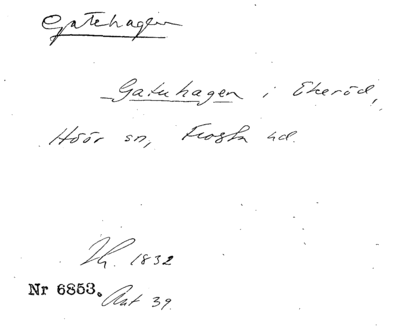 Gatehagen
Gatuhagen i Ekeröd,
Höör sn, Frosta hd.
Th. 1832
Nr 6853. Ant 39.